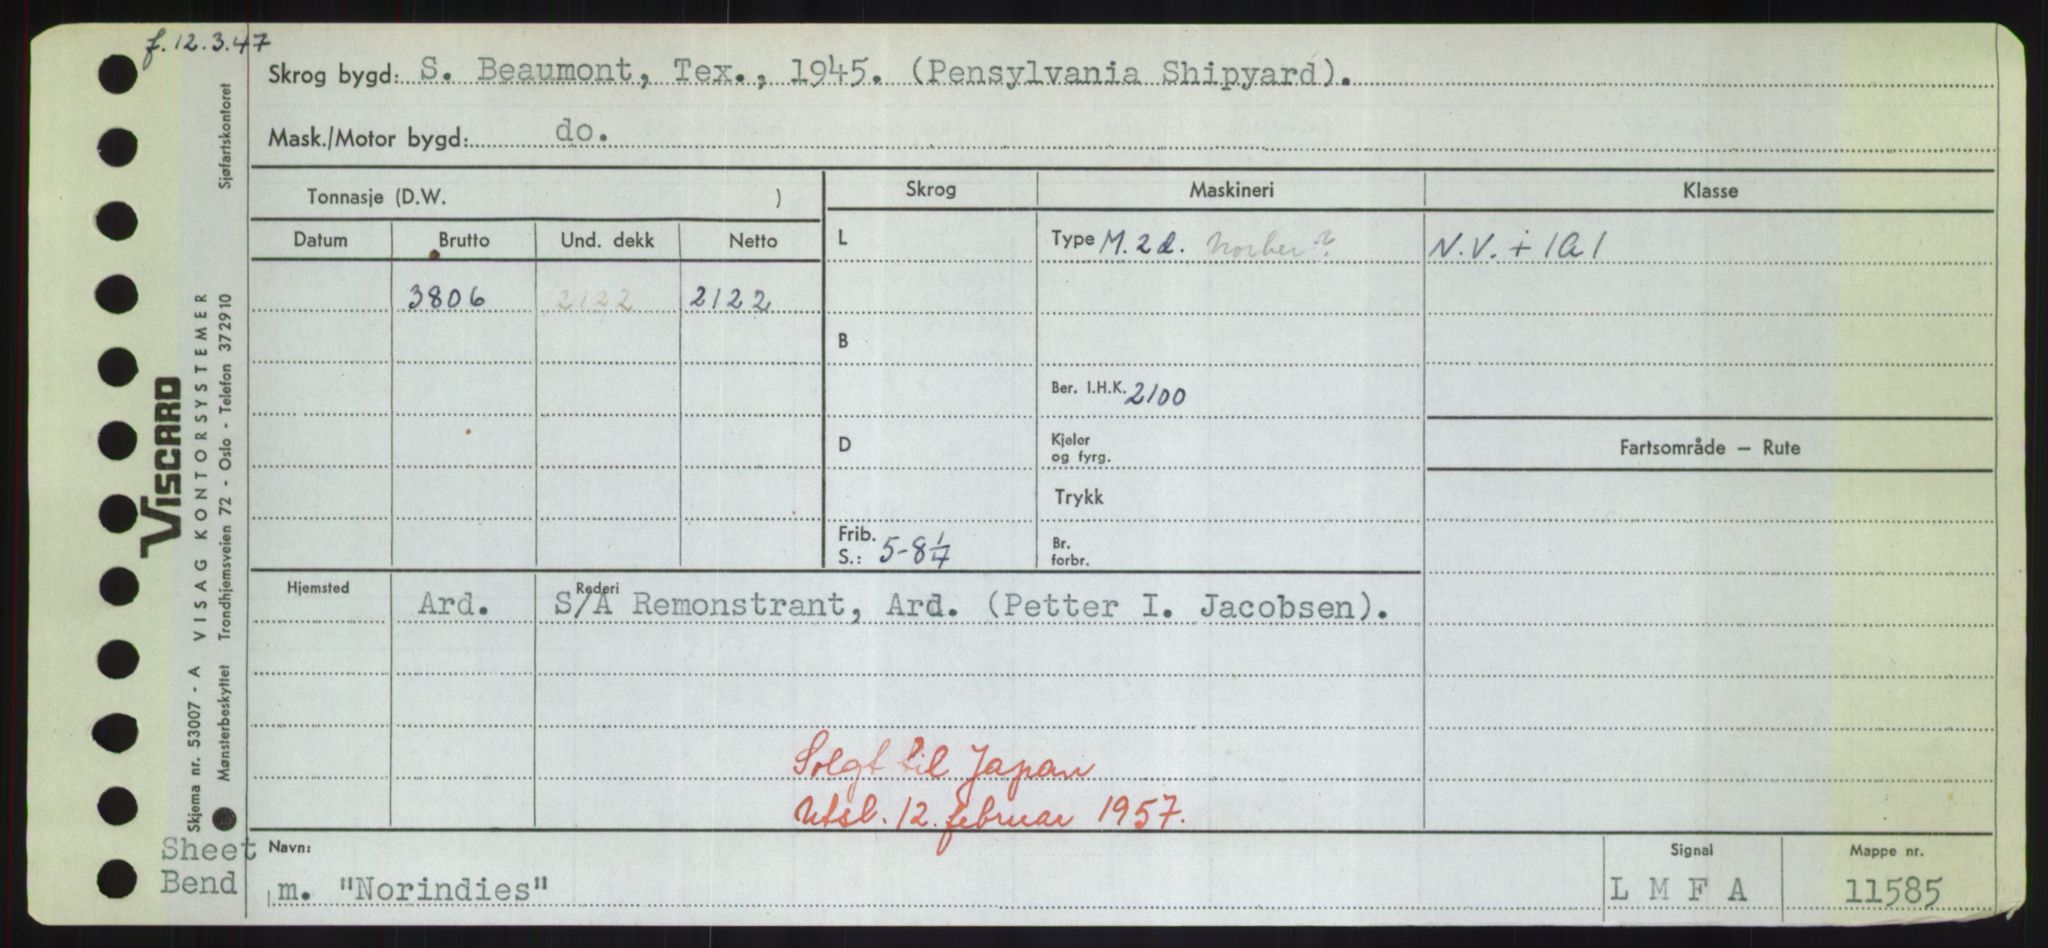 f. 12.3.47
Skrog bygd: S. Beaumont, Tex., 1945. (Pensylvania Shipyard).
Mask./Motor bygd: do.
Tonnasje (D.W. )
Skrog Maskineri Klasse
Datum Brutto Und. dekk Netto
L Type M. 2 d. N.V. + 1A1
3806 2122 2122
B
Ber. I.H.K. 2100
D Kjeler og fyrg. Fartsområde — Rute
Trykk
Frib. S.: 5-8 1/4 Br. forbr.
Hjemsted Rederi
Ard. S/A Remonstrant, Ard. (Petter I. Jacobsen).
Solgt til Japan
Utsl. 12. februar 1957.
Sheet Bend
Navn: Signal Mappe nr.
m. "Norindies" L M F A 11585
VISCARD
Skjema nr. 53007 - A VISAG KONTORSYSTEMER Sjøfartskontoret
Mønsterbeskyttet Trondhjemsveien 72 - Oslo - Telefon 372910